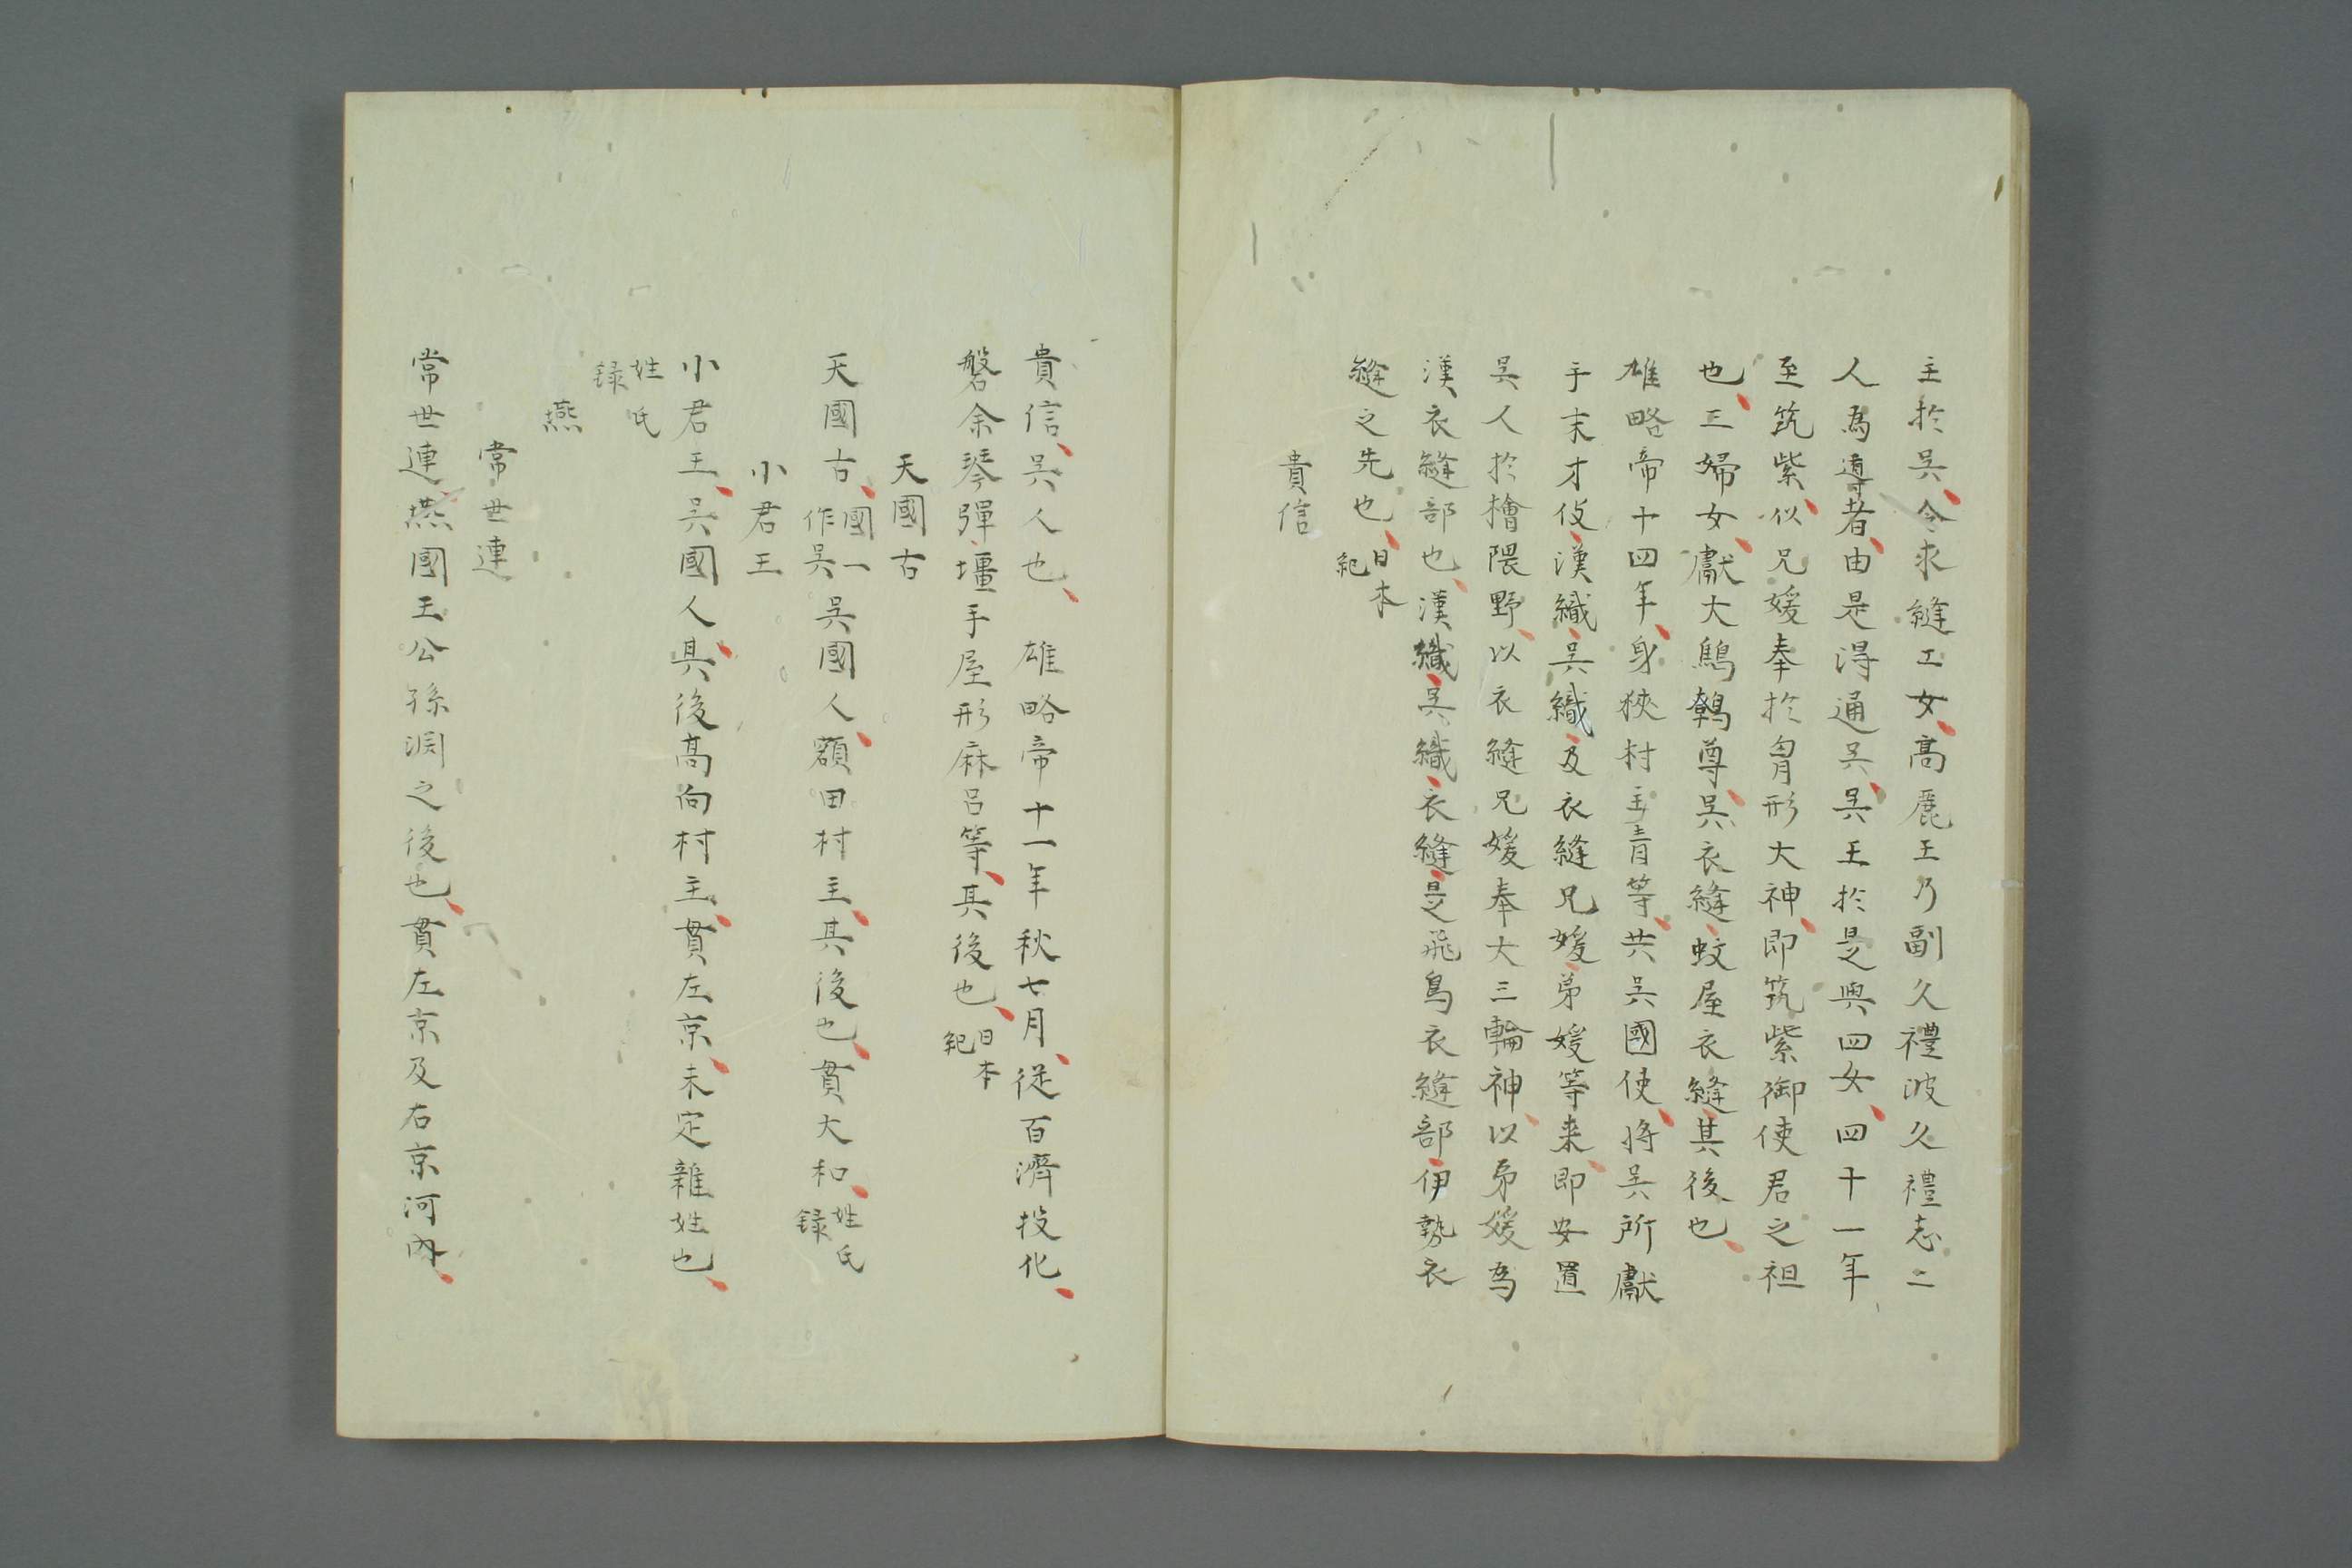 主於吳、令求縫工女、高麗王乃副久禮波久禮志二
人爲導者、由是得通吳、吳王於是與四女、四十一年
至筑紫、以兄媛奉於胷形大神、即筑紫御使君之祖
也、三婦女、獻大鷦鷯尊、吳衣縫、蚊屋衣縫其後也、
雄略帝十四年、身狹村主青等、共吳國使、将吳所獻
手末才伎、漢織、吳織、及衣縫兄媛、弟媛等来、即安置
吳人於檜隈野、以衣縫兄媛奉大三輪神、以弟媛為
漢衣縫部也、漢織、吳織、衣縫、是飛鳥衣縫部、伊勢衣
縫之先也、日本紀
貴信
貴信、吳人也、雄略帝十一年秋七月、従百濟投化、
磐余琴彈壃手屋形麻呂等、其後也、日本紀
天國古
天國古、國一作吳吳國人、額田村主、其後也、貫大和、姓氏録
小君王
小君王、吳國人、其後高向村主、貫左京、未定雜姓也、
姓氏録
燕
常世連
常世連、燕國王公孫淵之後也、貫左京及右京河內、